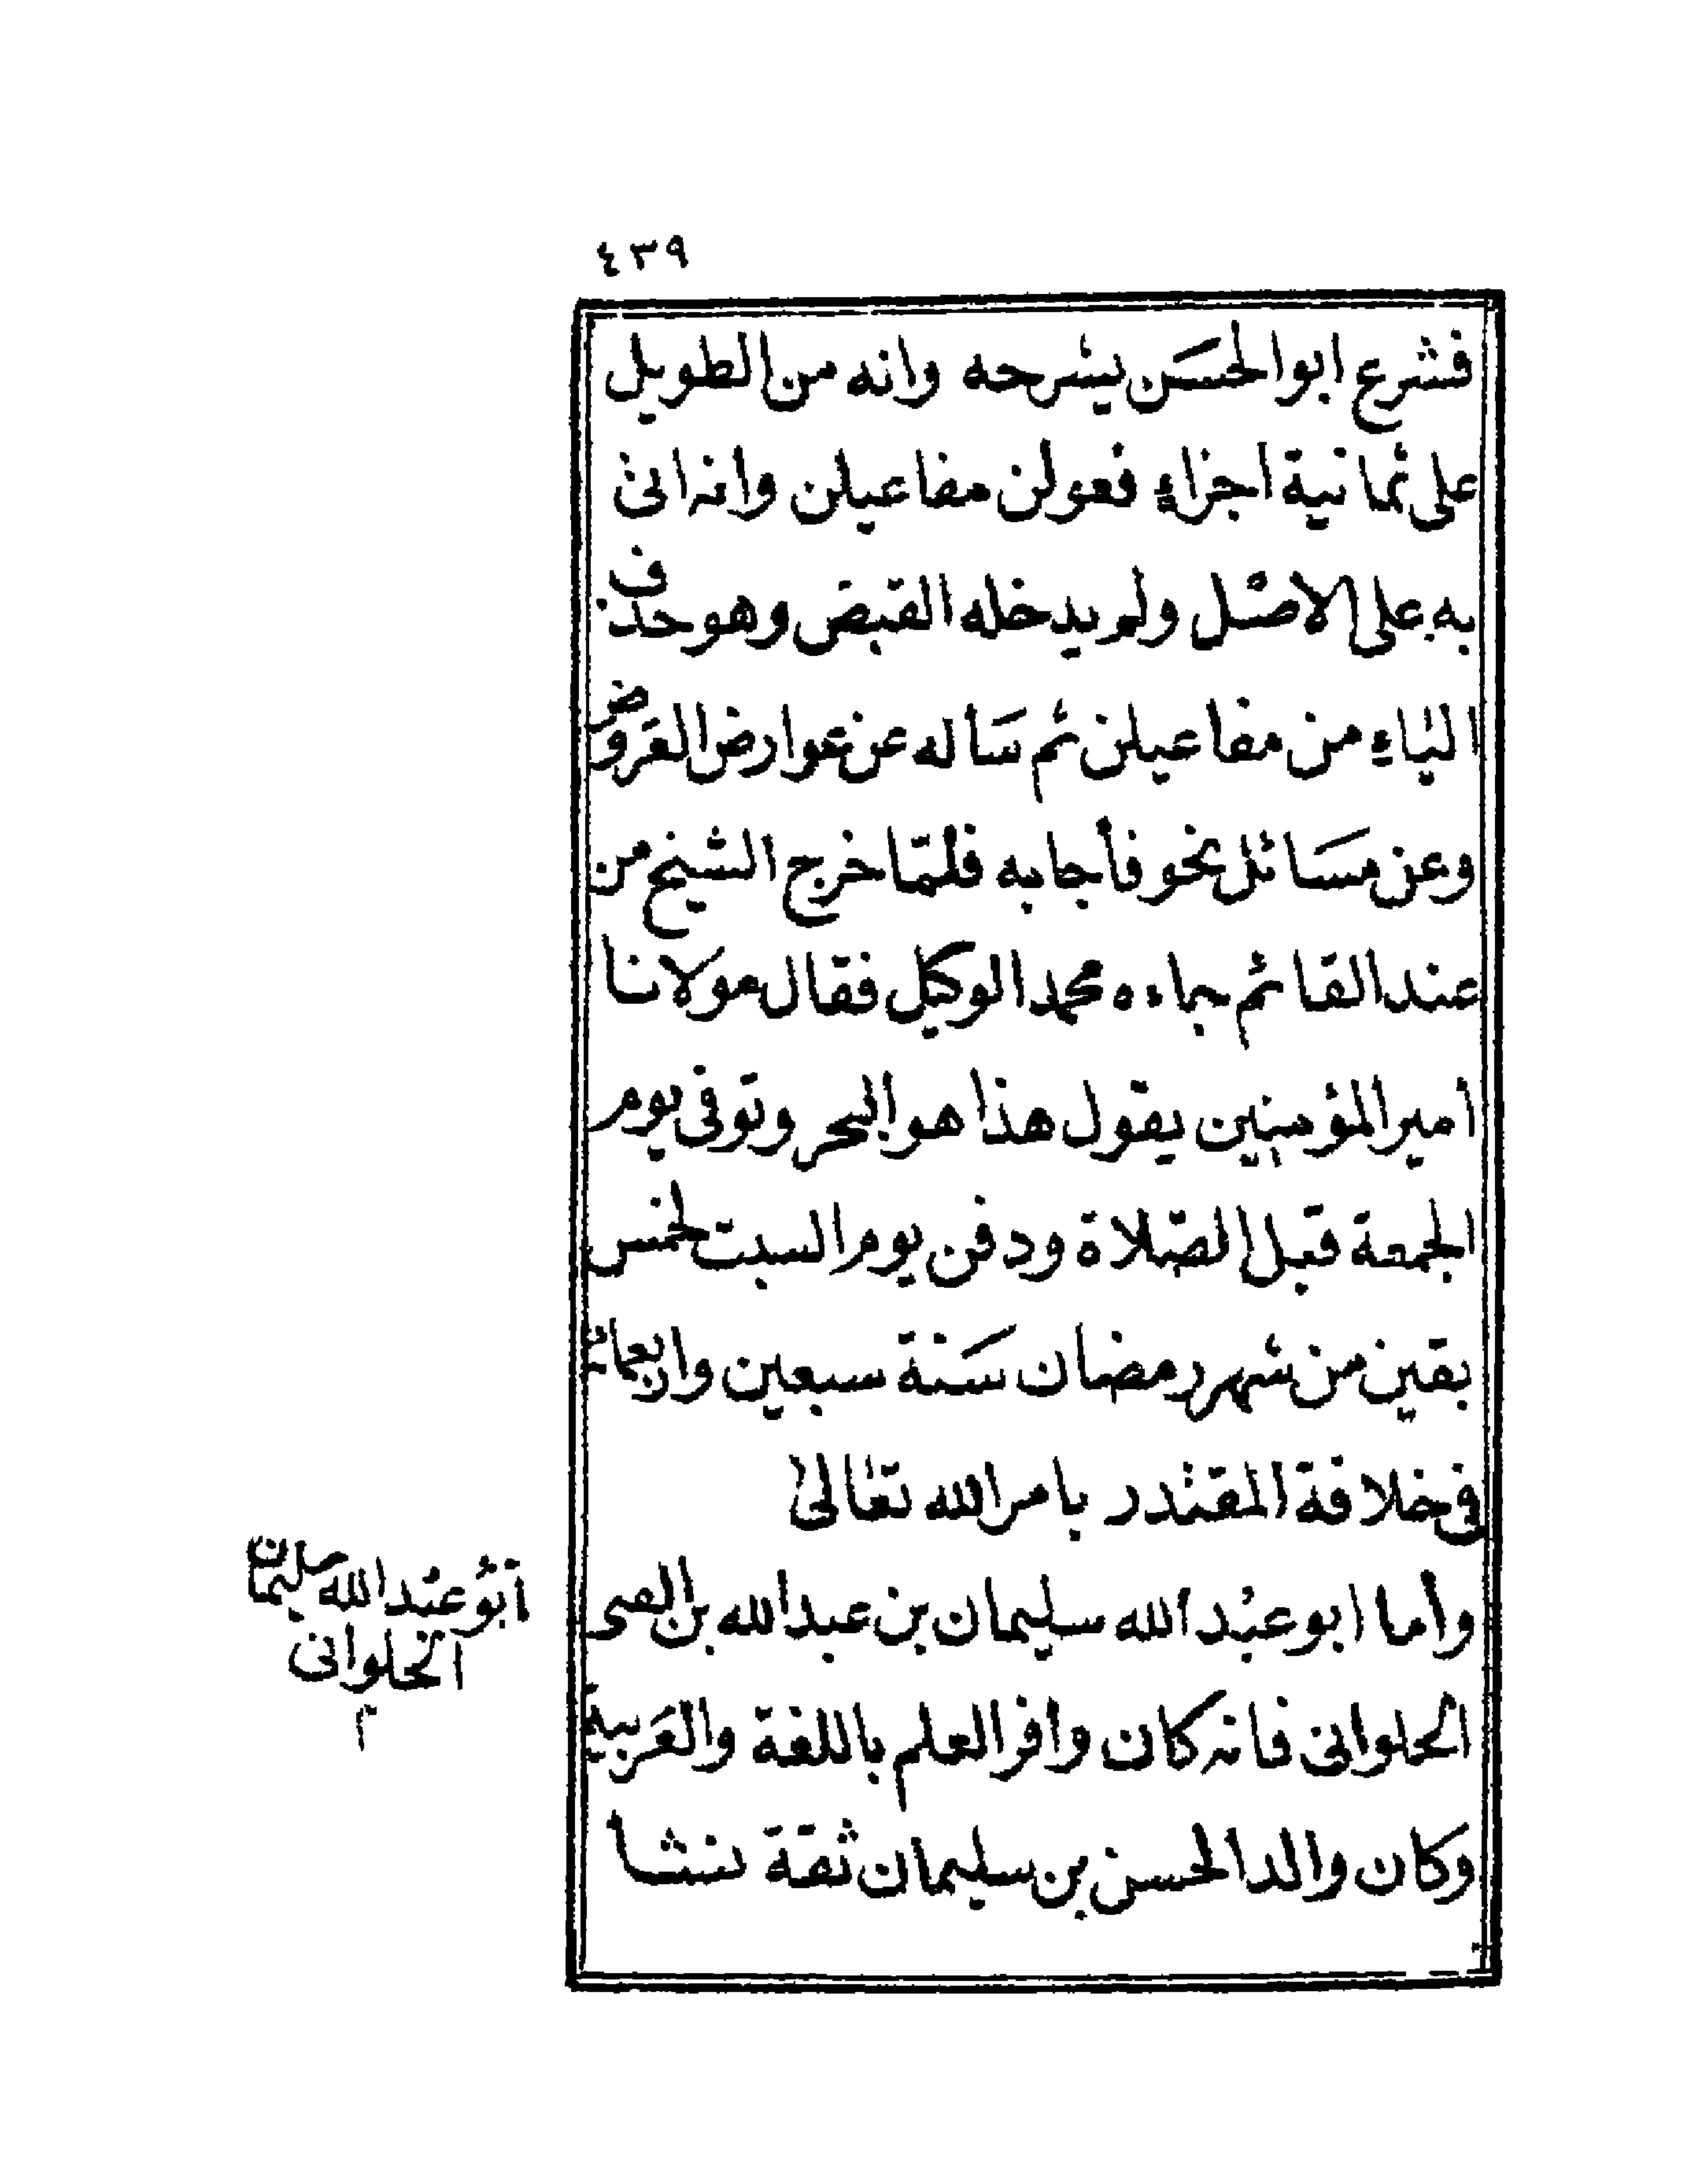 ٤٣٩
فشرع ابوالحسَن يشرحه وانه من الطويل
على ثمانية اجزاءٍ فعولن مفاعيلن وانه اتى
به على الاصل ولم يدخله القبض وهو حذف
الياءِ من مفاعيلن ثم سَاله عن عوارض العَروض
وعن مسَائل نحو فأجابه فلمّا خرج الشيخ من
عند القائم جاءه محمد الوكيل فقال مولانا
امير المؤمنين يقول هذا هو البحر وتوفى يوم
الجمعة قبل الصّلاة ودفن يوم السبت لخمس
بقين من شهر رمضان سَنة سبعين واربعمائة
فى خلافة المقتدر بامر الله تعالىٰ
وأما ابو عبد الله سليمان بن عبد الله بن
الحلوانى فانه كان وافر العلم باللغة والعَربية
وكان والد الحسن بن سليمان ثقة ننشا
أبو عبد الله سليمان
الحلوانى